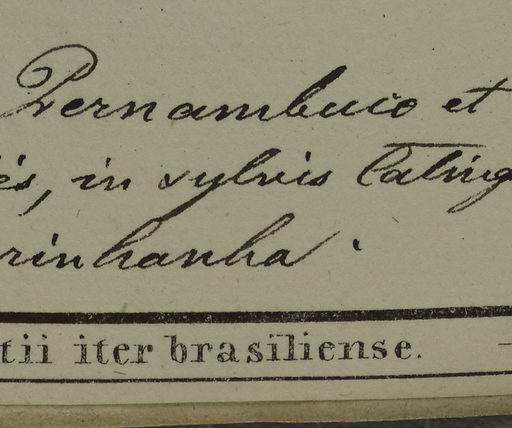 Pernambuco et
és, in sylvis Cating
rinhanha.
tii iter brasiliense.